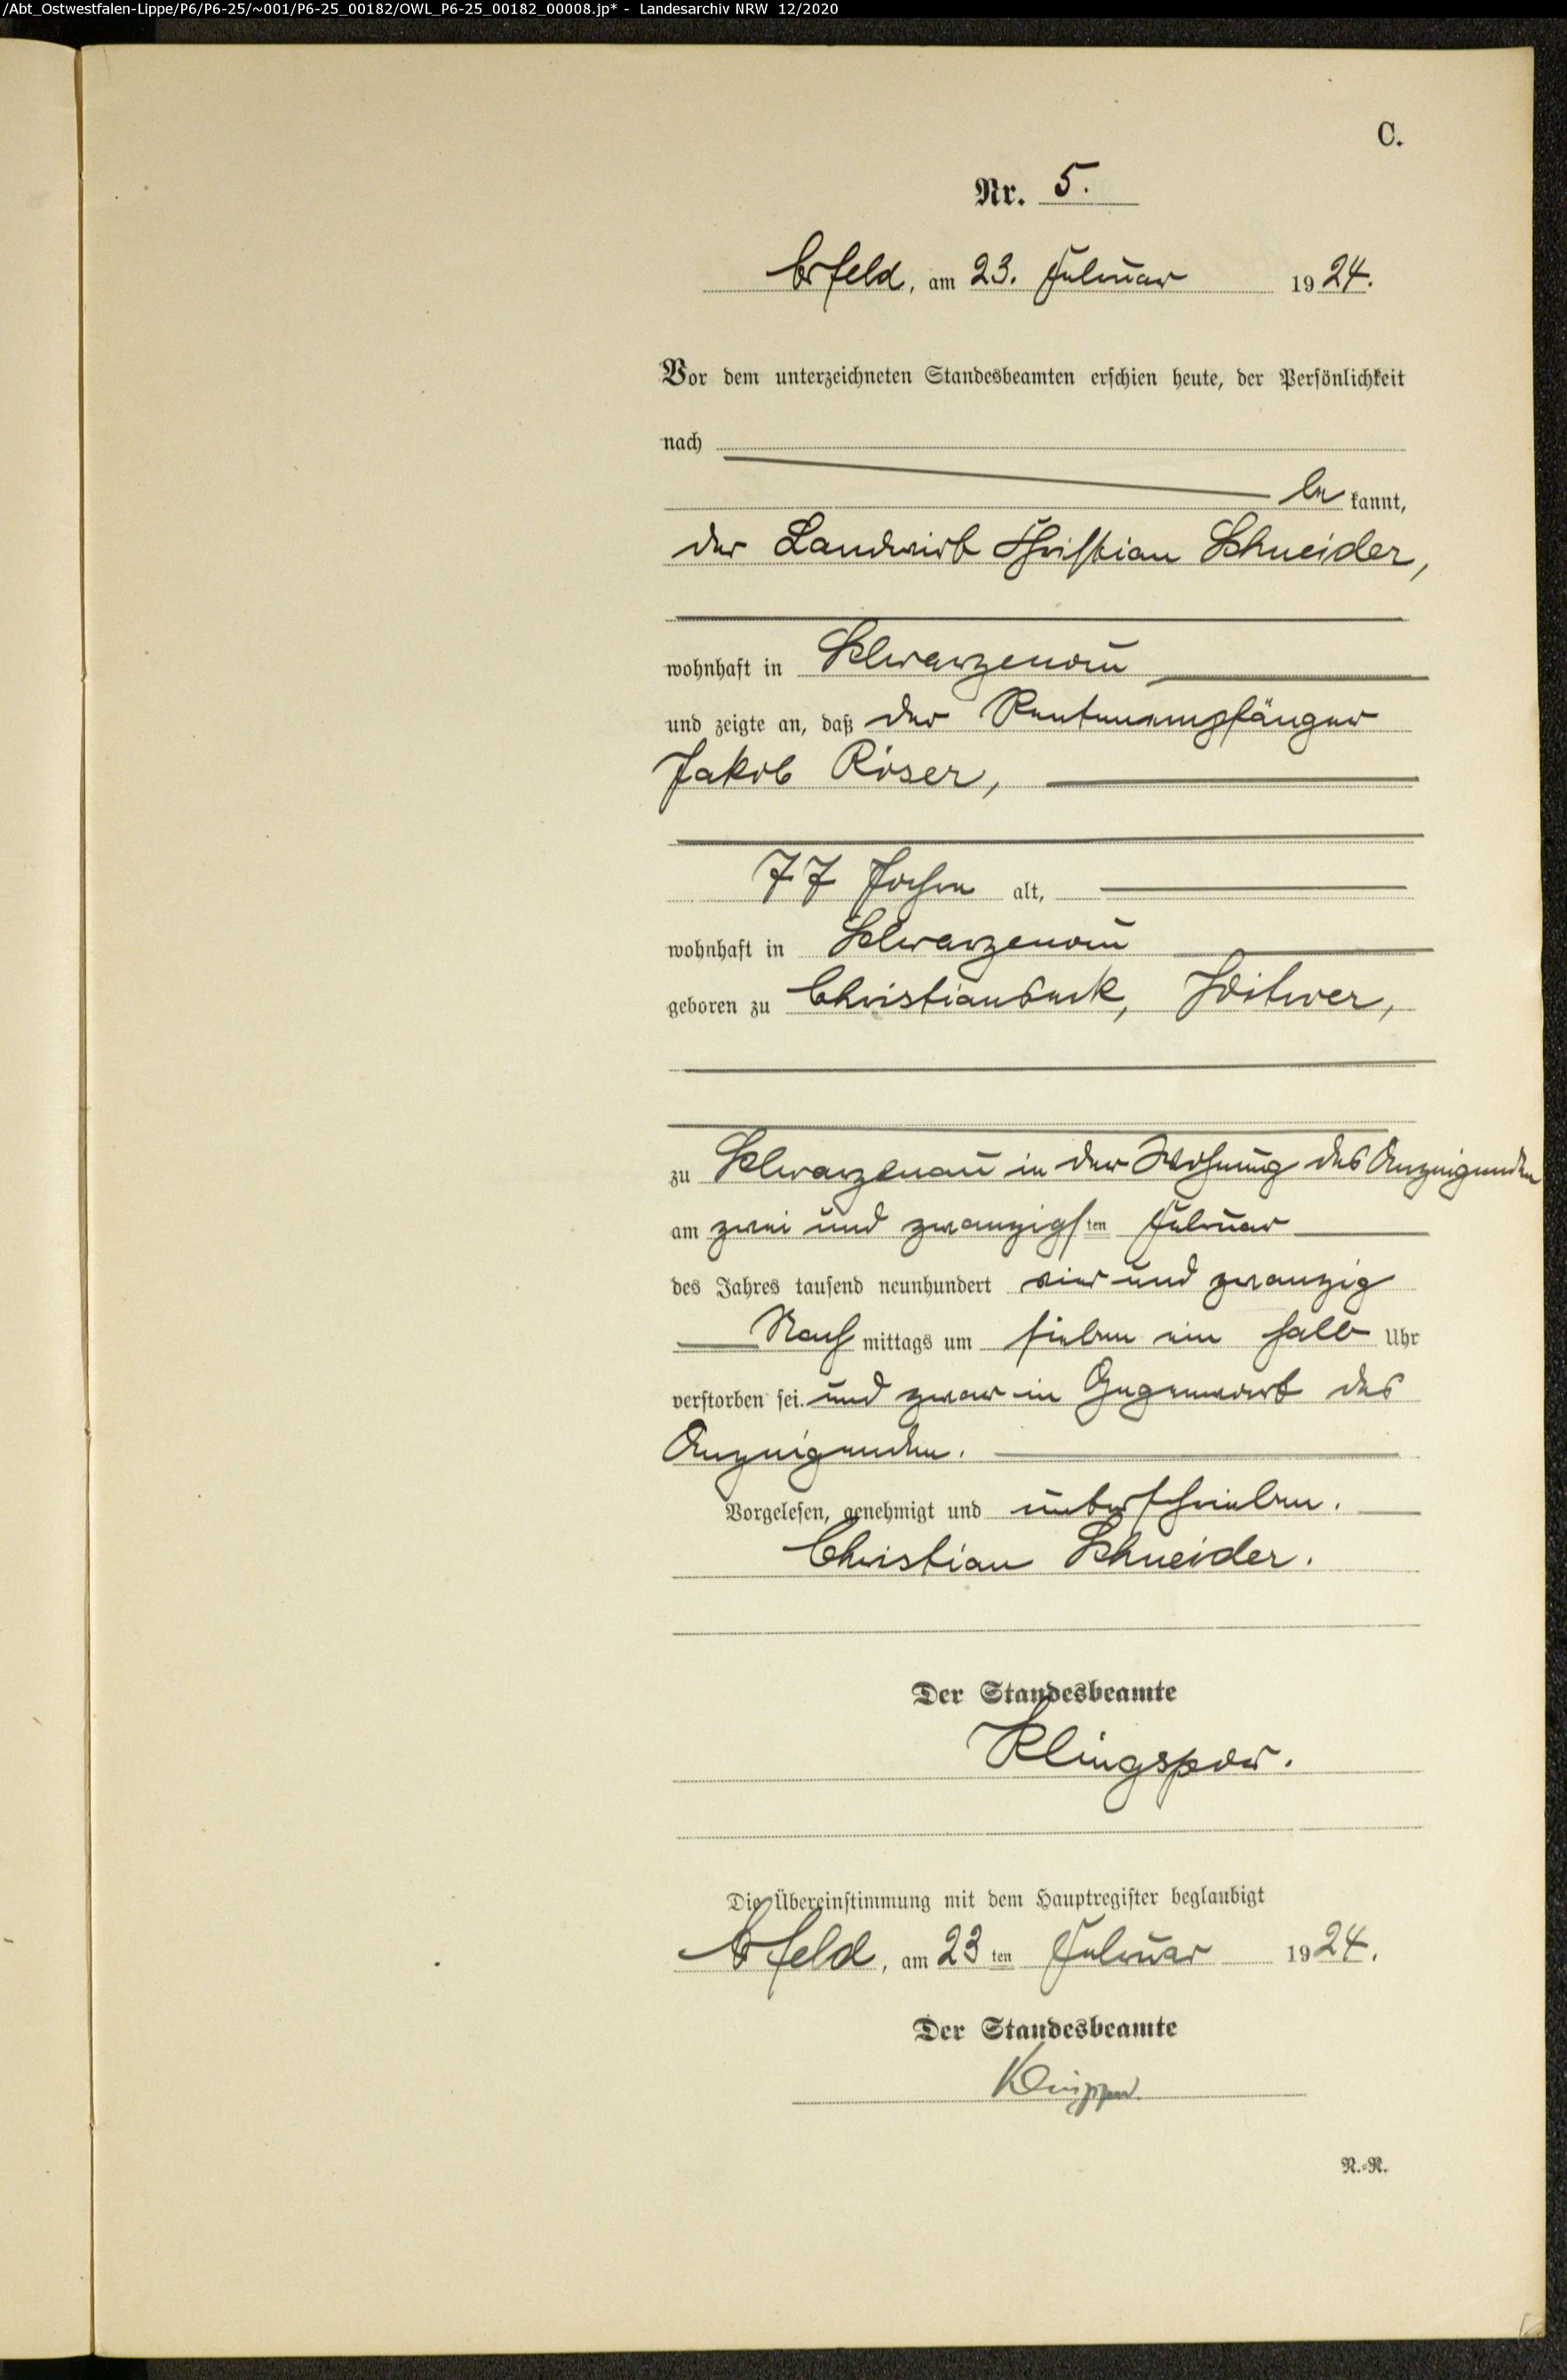 /Abt_Ostwestfalen-Lippe/P6/P6-25/~001/P6-25_00182/OWL_P6-25_00182_00008.jp* - Landesarchiv NRW 12/2020
C.
Nr. 5.
Erfeld, am 23. Februar 1924.
Vor dem unterzeichneten Standesbeamten erschien heute, der Persönlichkeit
nach
be kannt,
der Landwirt Christian Schneider,
wohnhaft in Schwarzenau
und zeigte an, daß der Rentenempfänger
Jakob Röser,
77 Jahre alt,
wohnhaft in Schwarzenau
geboren zu Christianseck, Witwer,
zu Schwarzenau in der Wohnung des Anzeigenden
am zwei und zwanzigsten Februar
des Jahres tausend neunhundert vier und zwanzig
Nach mittags um sieben ein halb Uhr
verstorben sei. und zwar in Gegenwart des
Anzeigenden.
Vorgelesen, genehmigt und unterschrieben.
Christian Schneider.
Der Standesbeamte
Klingspor.
Die Übereinstimmung mit dem Hauptregister beglaubigt
Erfeld, am 23ten Februar 1924.
Der Standesbeamte
R.-R.